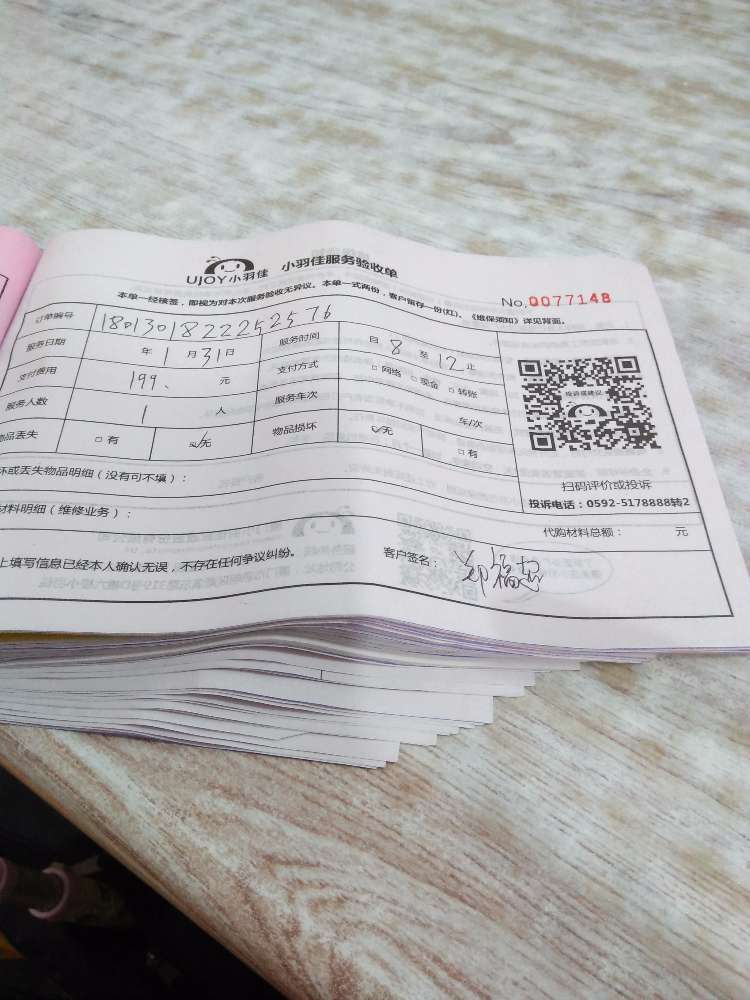 UJOY小羽佳 小羽佳服务验收单
本单一经接签，即视为对本次服务验收无异议。本单一式两份，客户留存一份(红)、《维保须知》详见背面。
No.0077148
订单编号 18013018222252576
服务日期 年 1 月 31 日 服务时间 自 8 至 12 止
支付费用 199. 元 支付方式 □ 网络 □ 现金 □ 转账
服务人数 1 人 服务车次 车/次
物品丢失 □ 有 ☑无 物品损坏 ☑无 □ 有
投诉或建议
扫码评价或投诉
投诉电话：0592-5178888转2
坏或丢失物品明细（没有可不填）：
材料明细（维修业务）：
代购材料总额： 元
上填写信息已经本人确认无误，不存在任何争议纠纷。 客户签名：